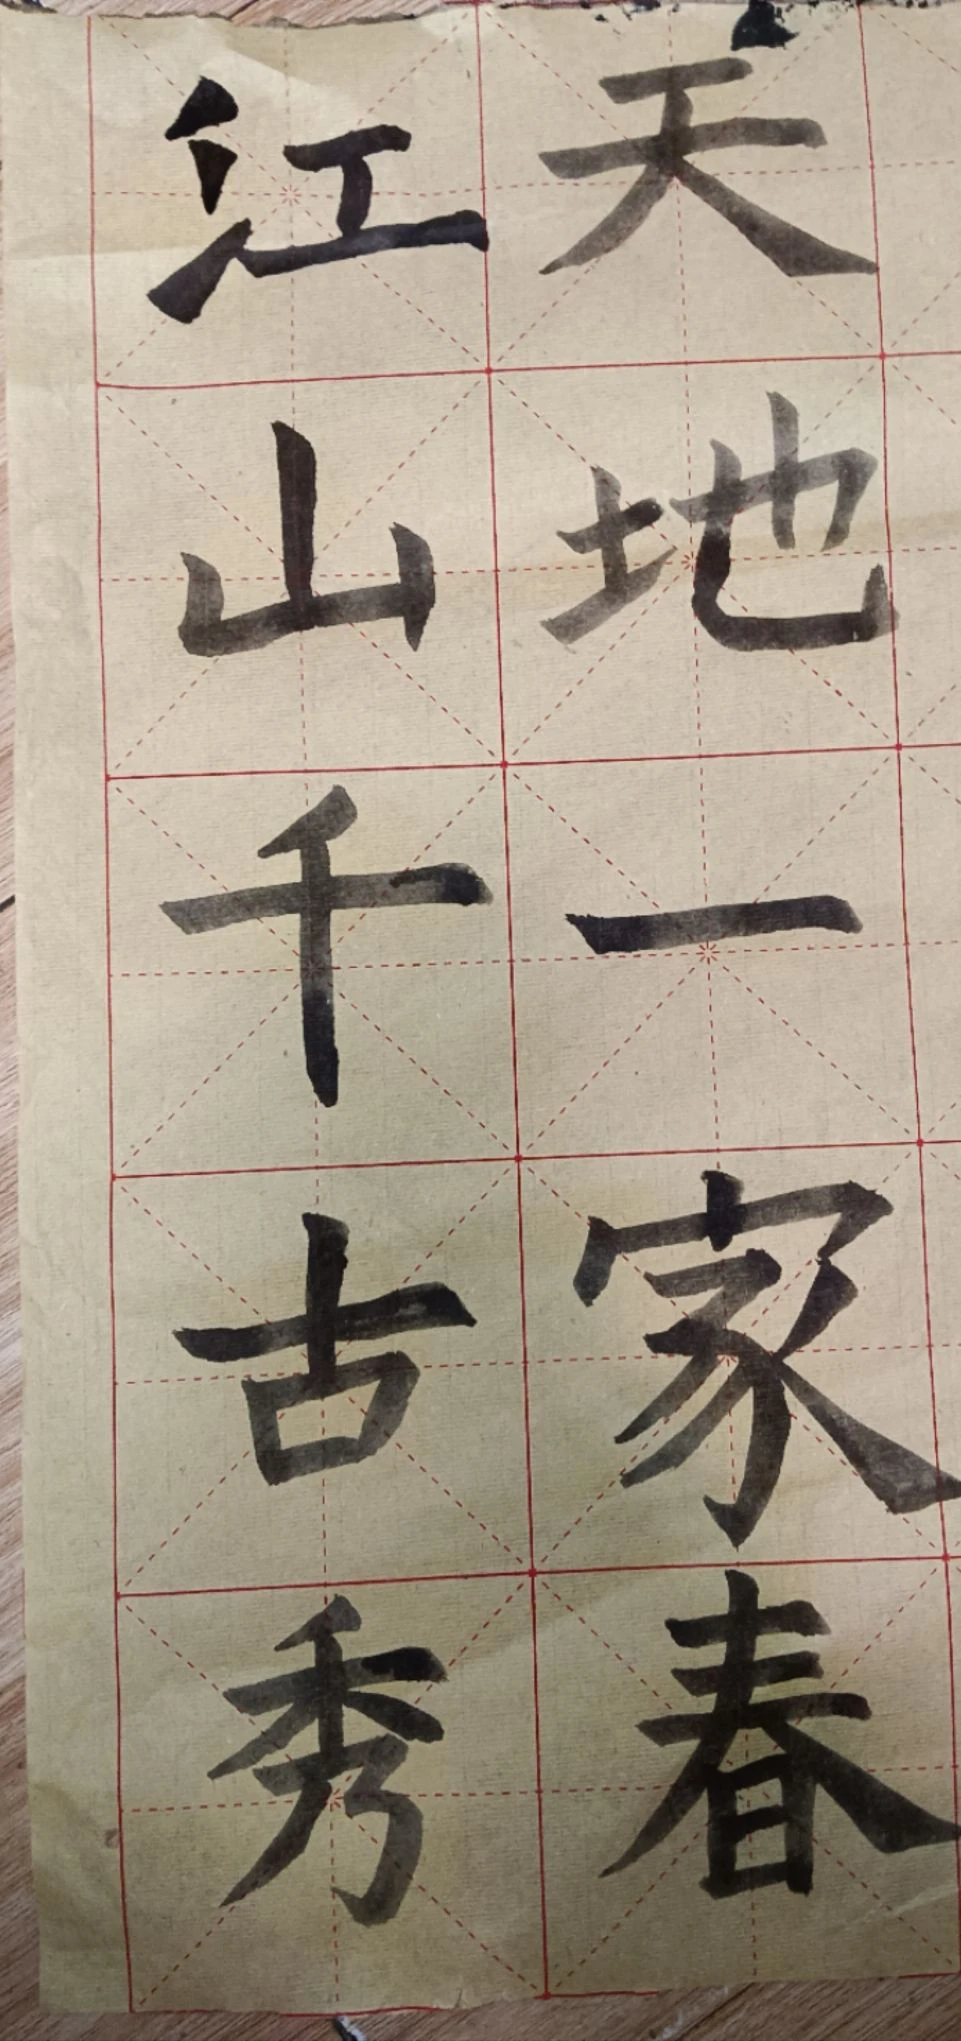 天地一家春
江山千古秀